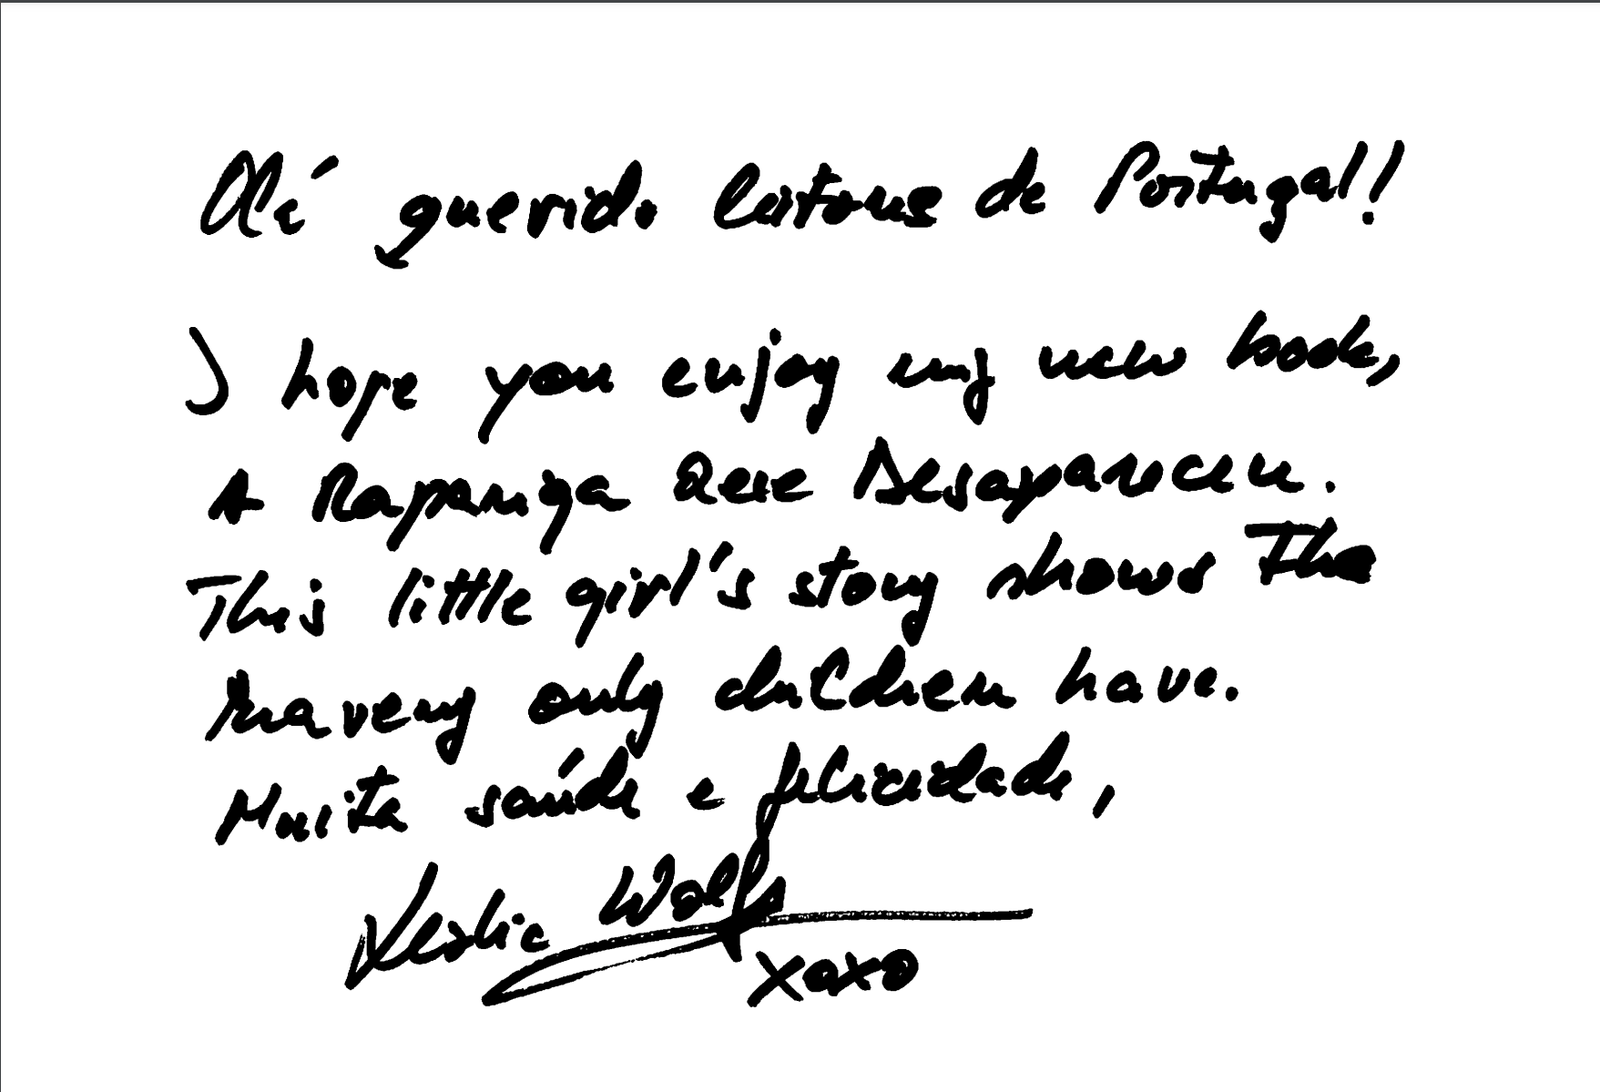 Olá querido leitores de Portugal!
I hope you enjoy my new book,
A Rapariga Que Desapareceu.
This little girl's story shows the
bravery only children have.
Muita saúde e felicidade,
Leslie Wolfe
xoxo